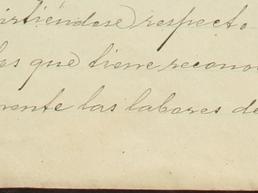 irtiéndose respecto
los que tiene recono
mente las labores de